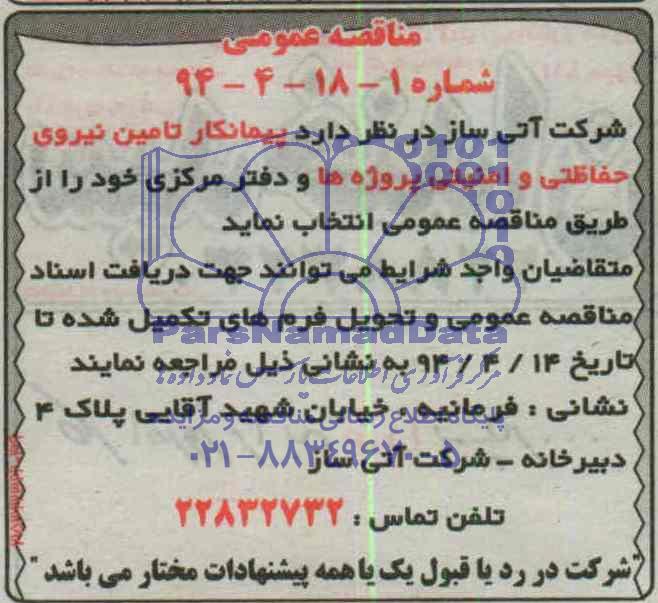 مناقصه عمومی
شماره ۱ – ۱۸ – ۴ – ۹۴
شرکت آتی ساز در نظر دارد پیمانکار تامین نیروی
حفاظتی و امنیتی پروژه ها و دفتر مرکزی خود را از
طریق مناقصه عمومی انتخاب نماید
متقاضیان واجد شرایط می توانند جهت دریافت اسناد
مناقصه عمومی و تحویل فرم های تکمیل شده تا
ParsNamadData
تاریخ ۱۴ / ۴ / ۹۴ به نشانی ذیل مراجعه نمایند
مرکز فرآوری اطلاعات پارس نماد داده ها
نشانی : فرمانیه ، خیابان شهید آقایی پلاک ۴
پایگاه اطلاع رسانی مناقصه و مزایده
دبیرخانه – شرکت آتی ساز
۰۲۱-۸۸۳۴۹۶۷۰-۵
تلفن تماس : ۲۲۸۳۲۷۳۲
"شرکت در رد یا قبول یک یا همه پیشنهادات مختار می باشد"